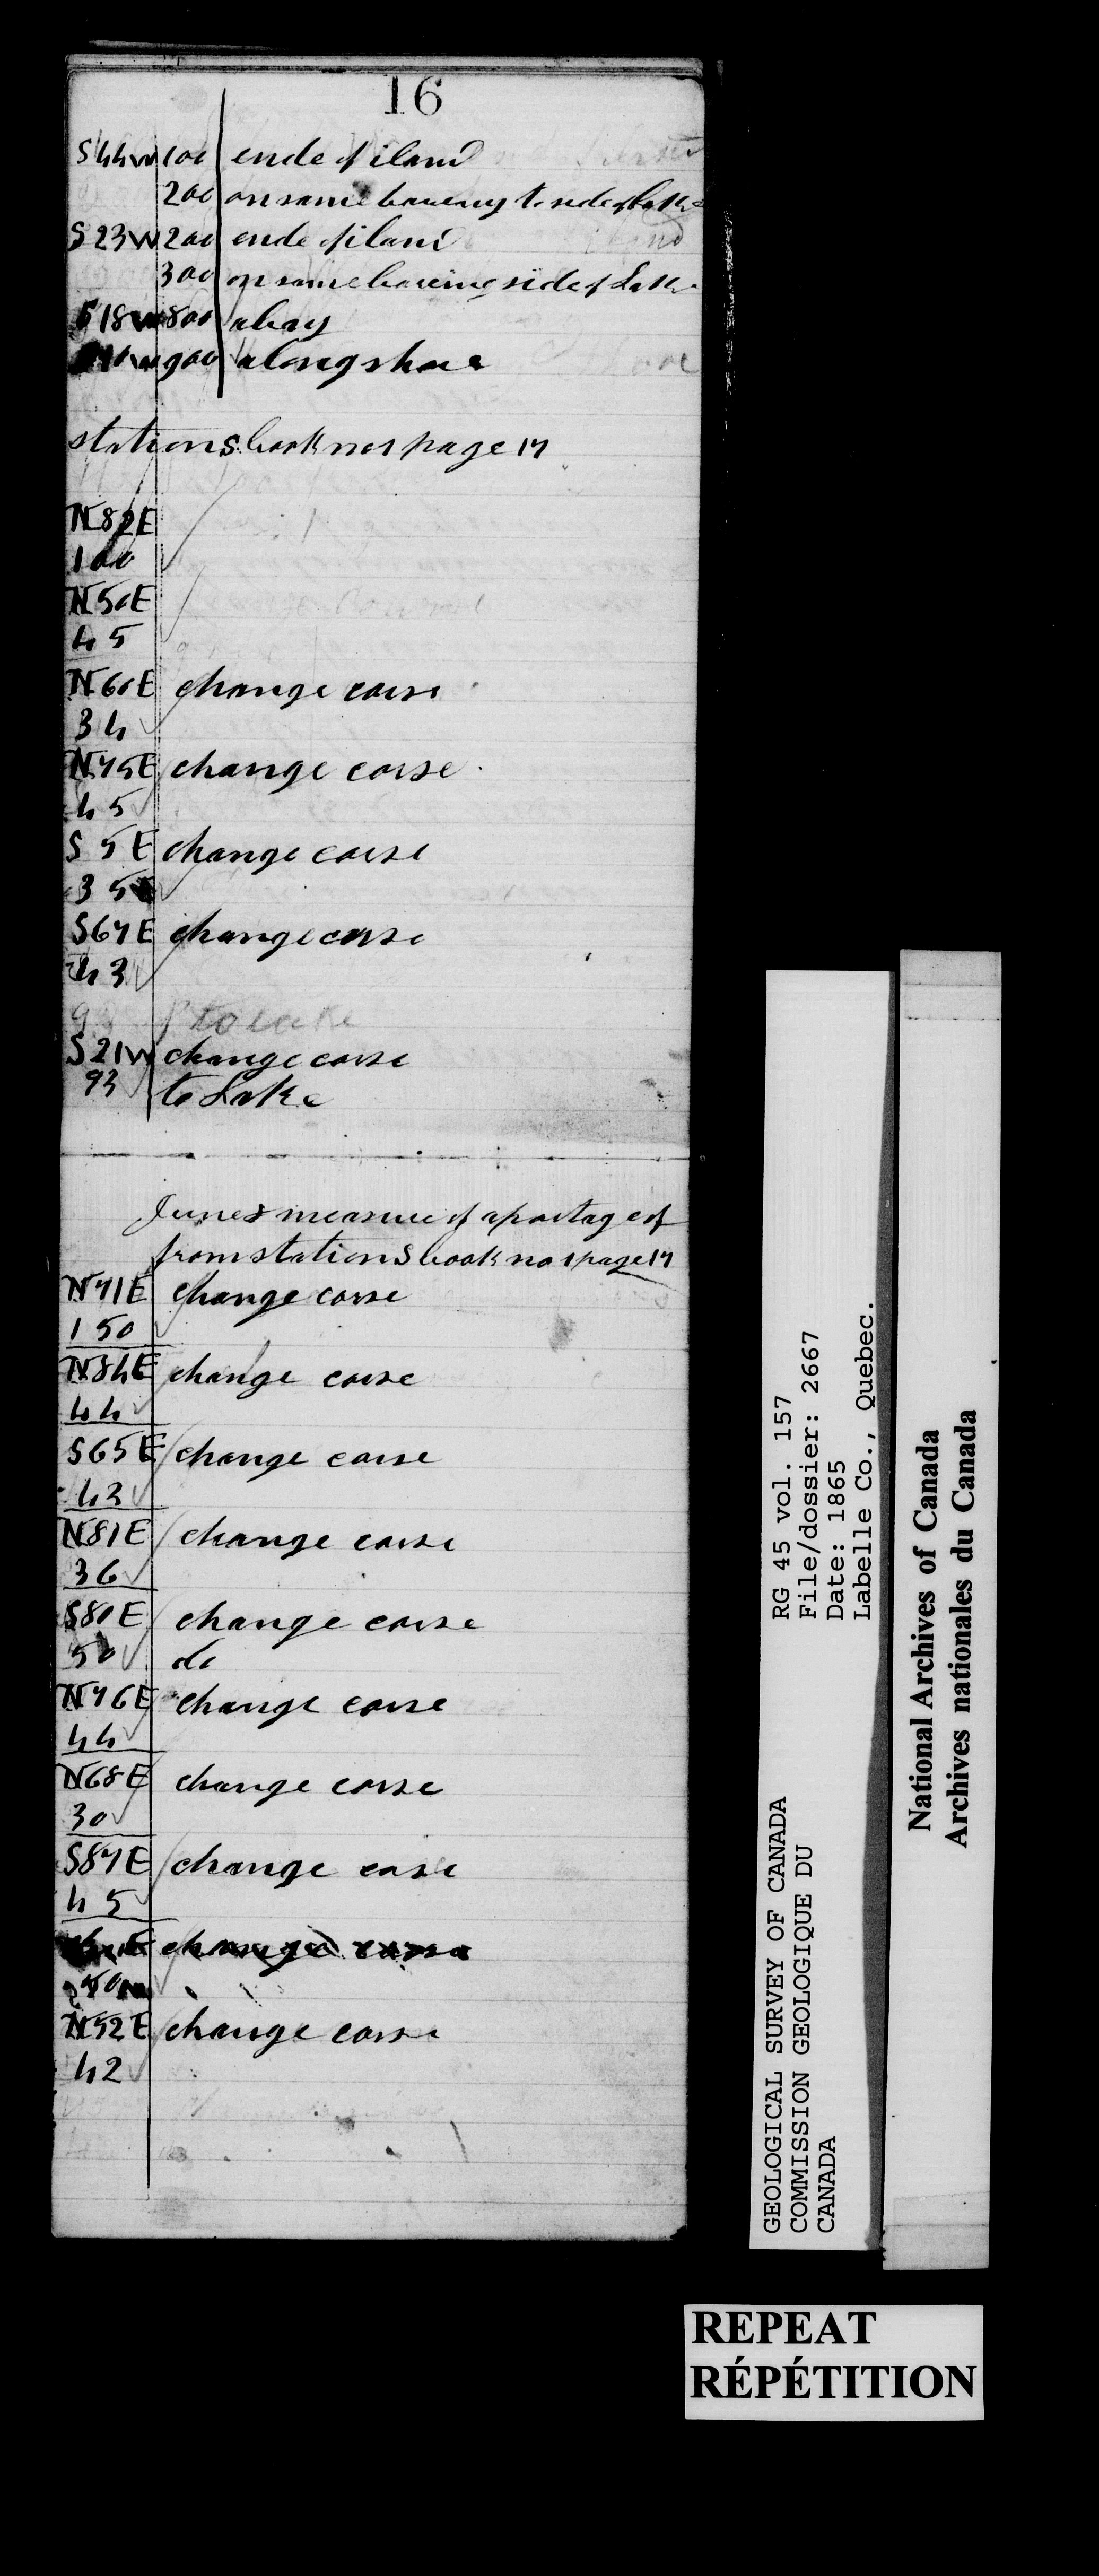 16
S44W 100 ende of iland
200 on same bareing to side of Lake
S23W 200 ende of iland
300 on same bareing side of Lake
S18W 800 abay
900 along shore
station S book no 1 page 17
N82E
100
N50E
45
N60E change corse
34
N75E change corse
45
S5E change corse
35
S67E change corse
43
to Lake
S21W change corse
93 to Lake
June 8 measure of aportage of
from station S book no 1 page 17
N71E change corse
150
N84E change corse
44
S65E change corse
43
N81E change corse
36
S80E change corse
50 do
N76E change corse
44
N68E change corse
30
S87E change corse
45
change corse
50
N52E change corse
42
RG 45 vol. 157
File/dossier: 2667
Date: 1865
Labelle Co., Quebec.
GEOLOGICAL SURVEY OF CANADA
COMMISSION GEOLOGIQUE DU
CANADA
National Archives of Canada
Archives nationales du Canada
REPEAT
RÉPÉTITION